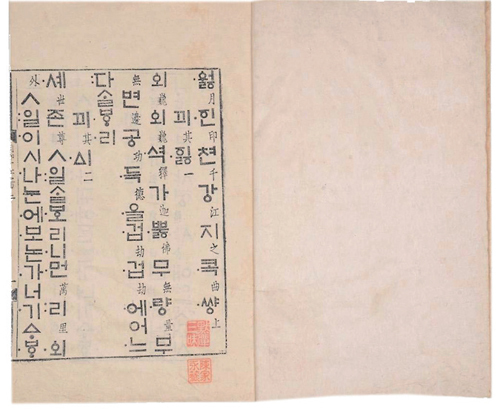 ᅌᅯᇙ月ᅙᅵᆫ印쳔千강江지之콕曲썅上
끠其ᅙᅵᇙ一
외巍외巍셕釋가迦뿛佛무無량量무
無변邊공功득德을겁劫겁劫에어느
다ᄉᆞᆯᄫᆞ리
끠其ᅀᅵ二
셰世존尊ㅅ일ᄉᆞᆯᄫᅩ리니먼萬리里외
外ㅅ일이시나눈에보논가너기ᅀᆞᄫᆞ